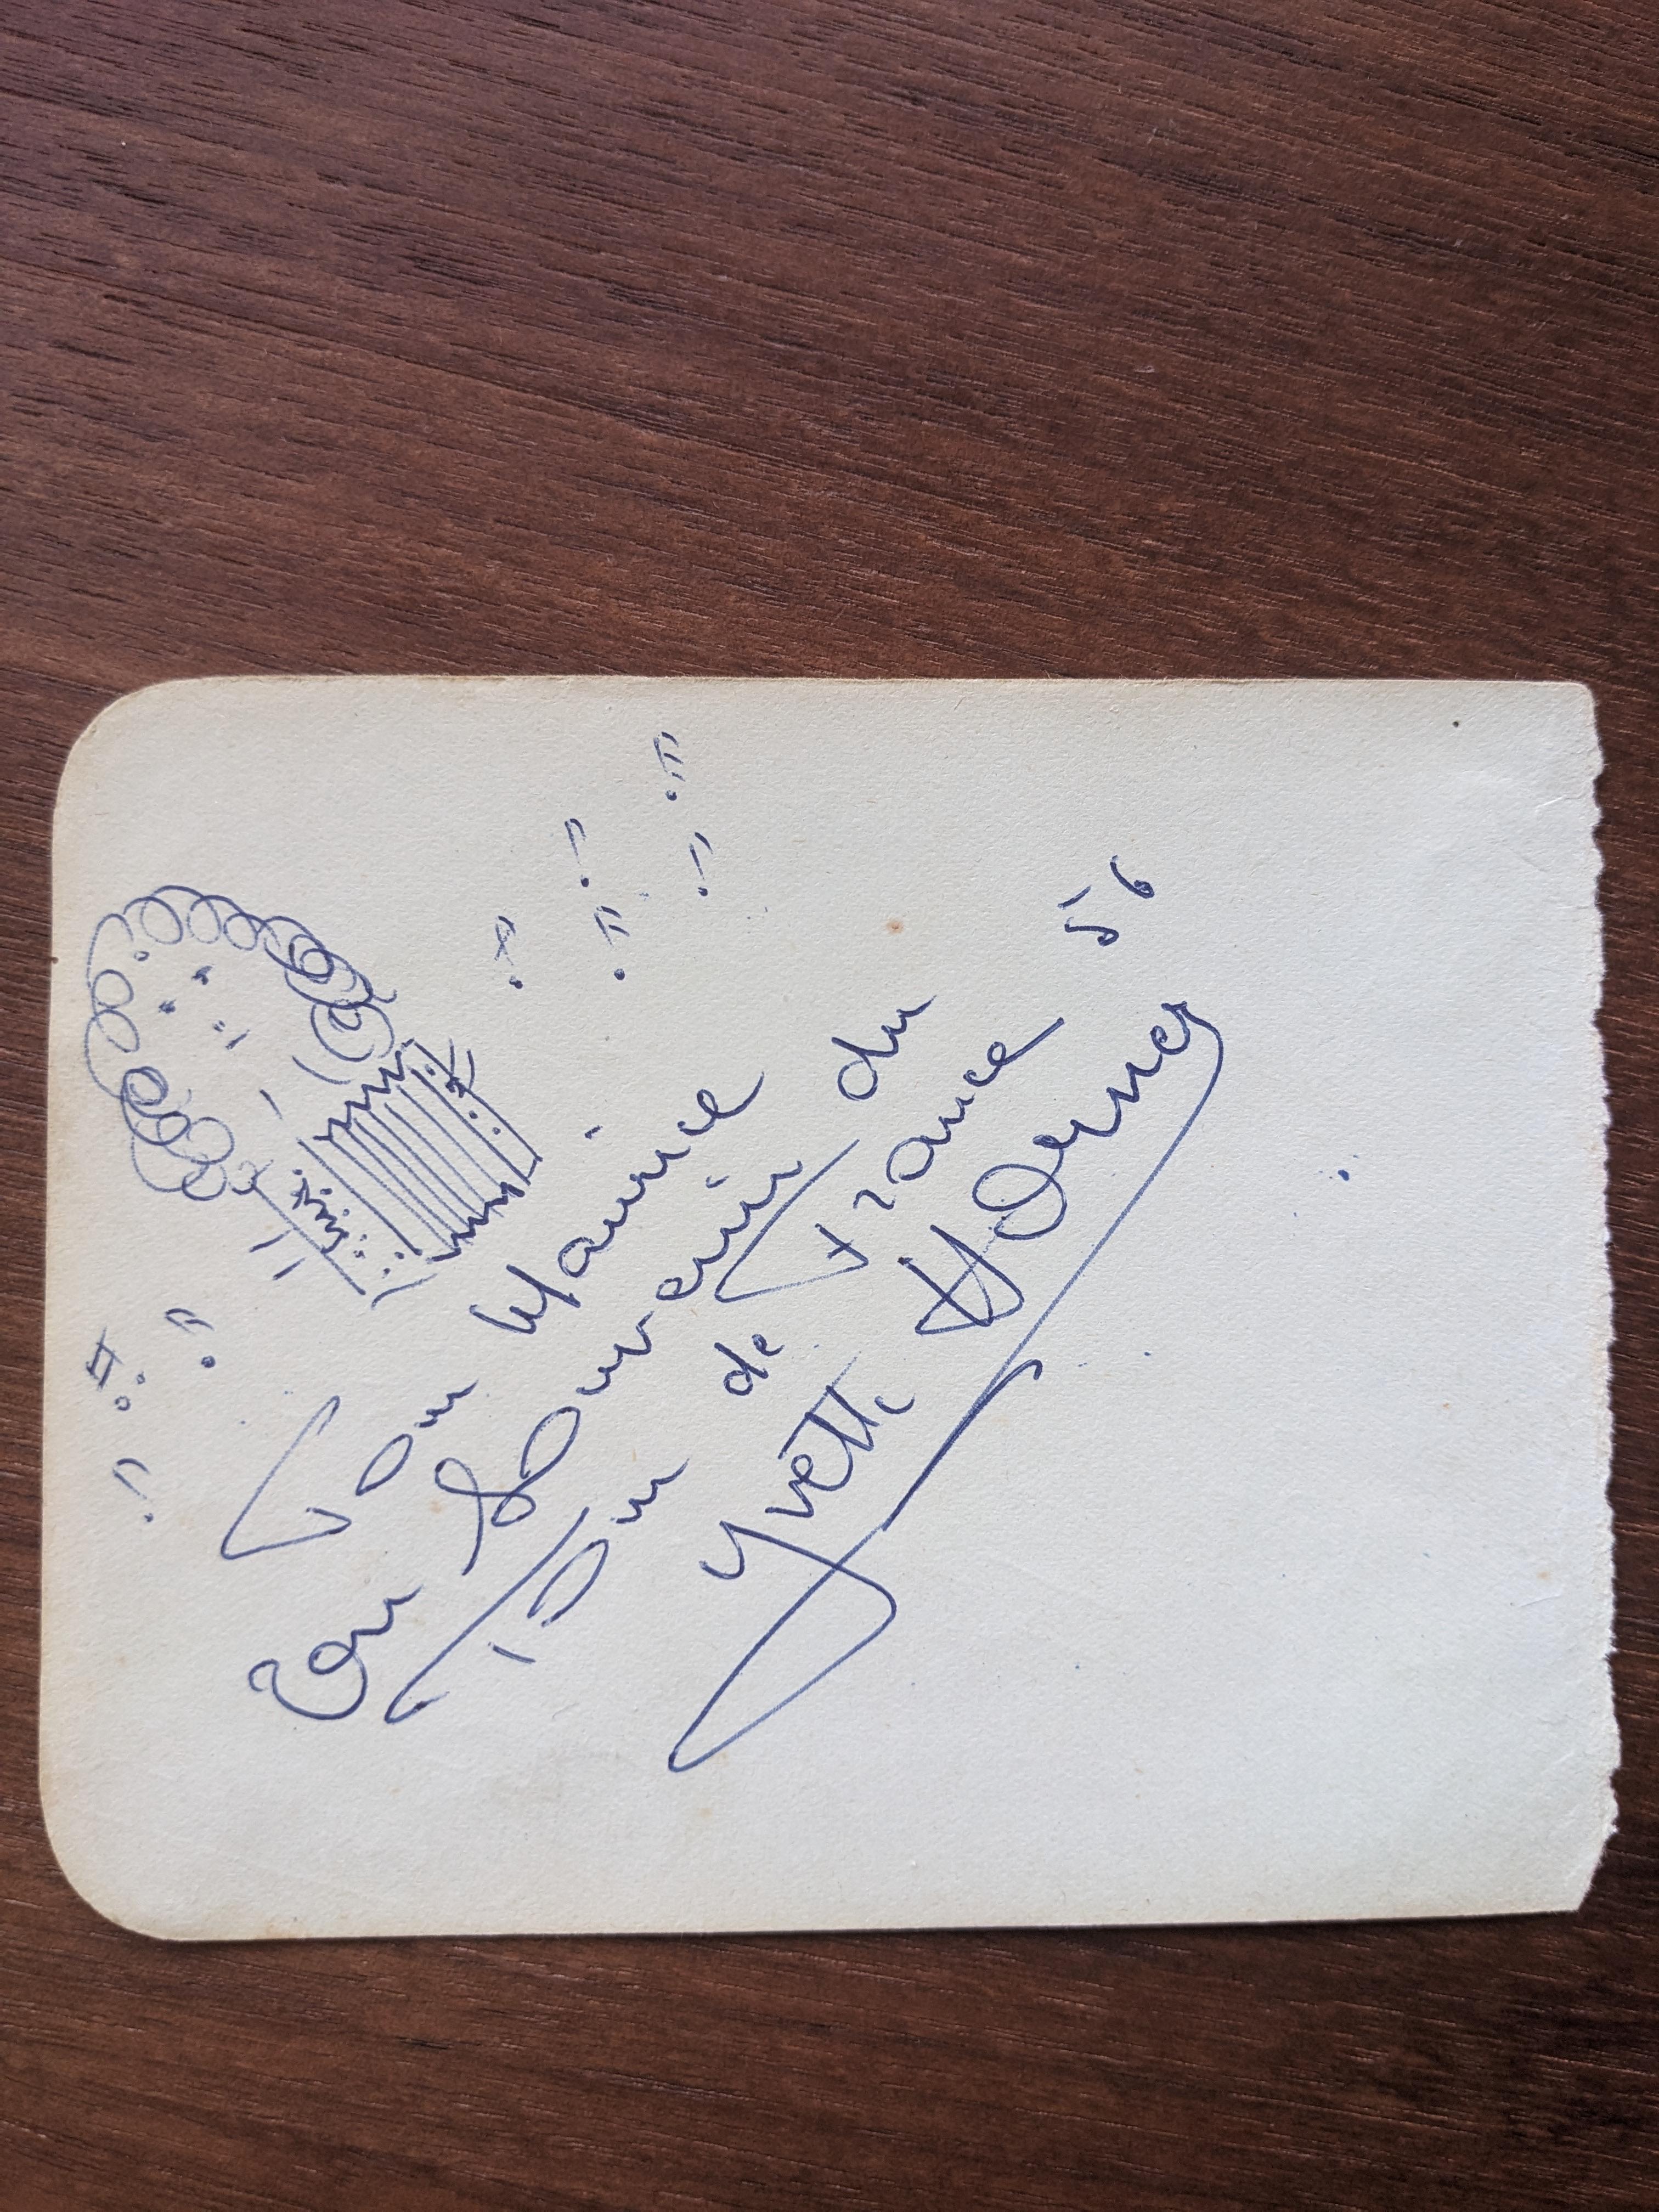 Pour Maurice
En Souvenir du
Tour de France 56
Yvette Horner